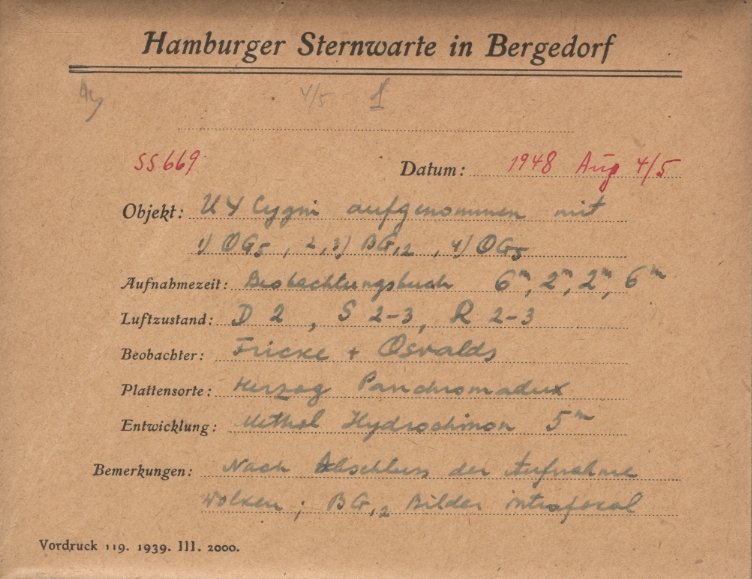 Hamburger Sternwarte in Bergedorf
4/5 1
SS669 Datum: 1948 Aug 4/5
Objekt: UY Cygni aufgenommen mit
1) OG5, 2,3) BG12, 4) OG5
Aufnahmezeit: Beobachtungsbuch 6m, 2m, 2m, 6m
Luftzustand: D 2, S 2-3, R 2-3
Beobachter: Fricke + Osvalds
Plattensorte: Herzog Panchromadux
Entwicklung: Methol Hydrochinon 5m
Bemerkungen: Nach Abschluss der Aufnahme
Wolken; BG12 Bilder intrafocal
Vordruck 119. 1939. III. 2000.